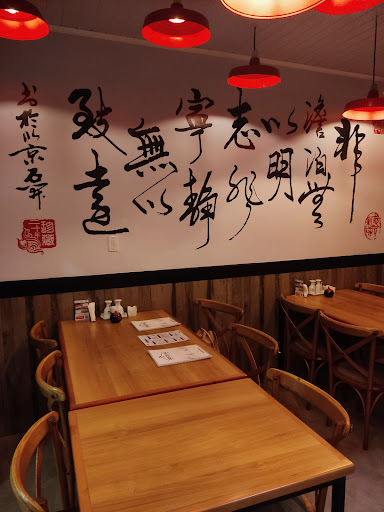 非
澹泊無
以明
志非
寧靜
無以
致遠
书於北京